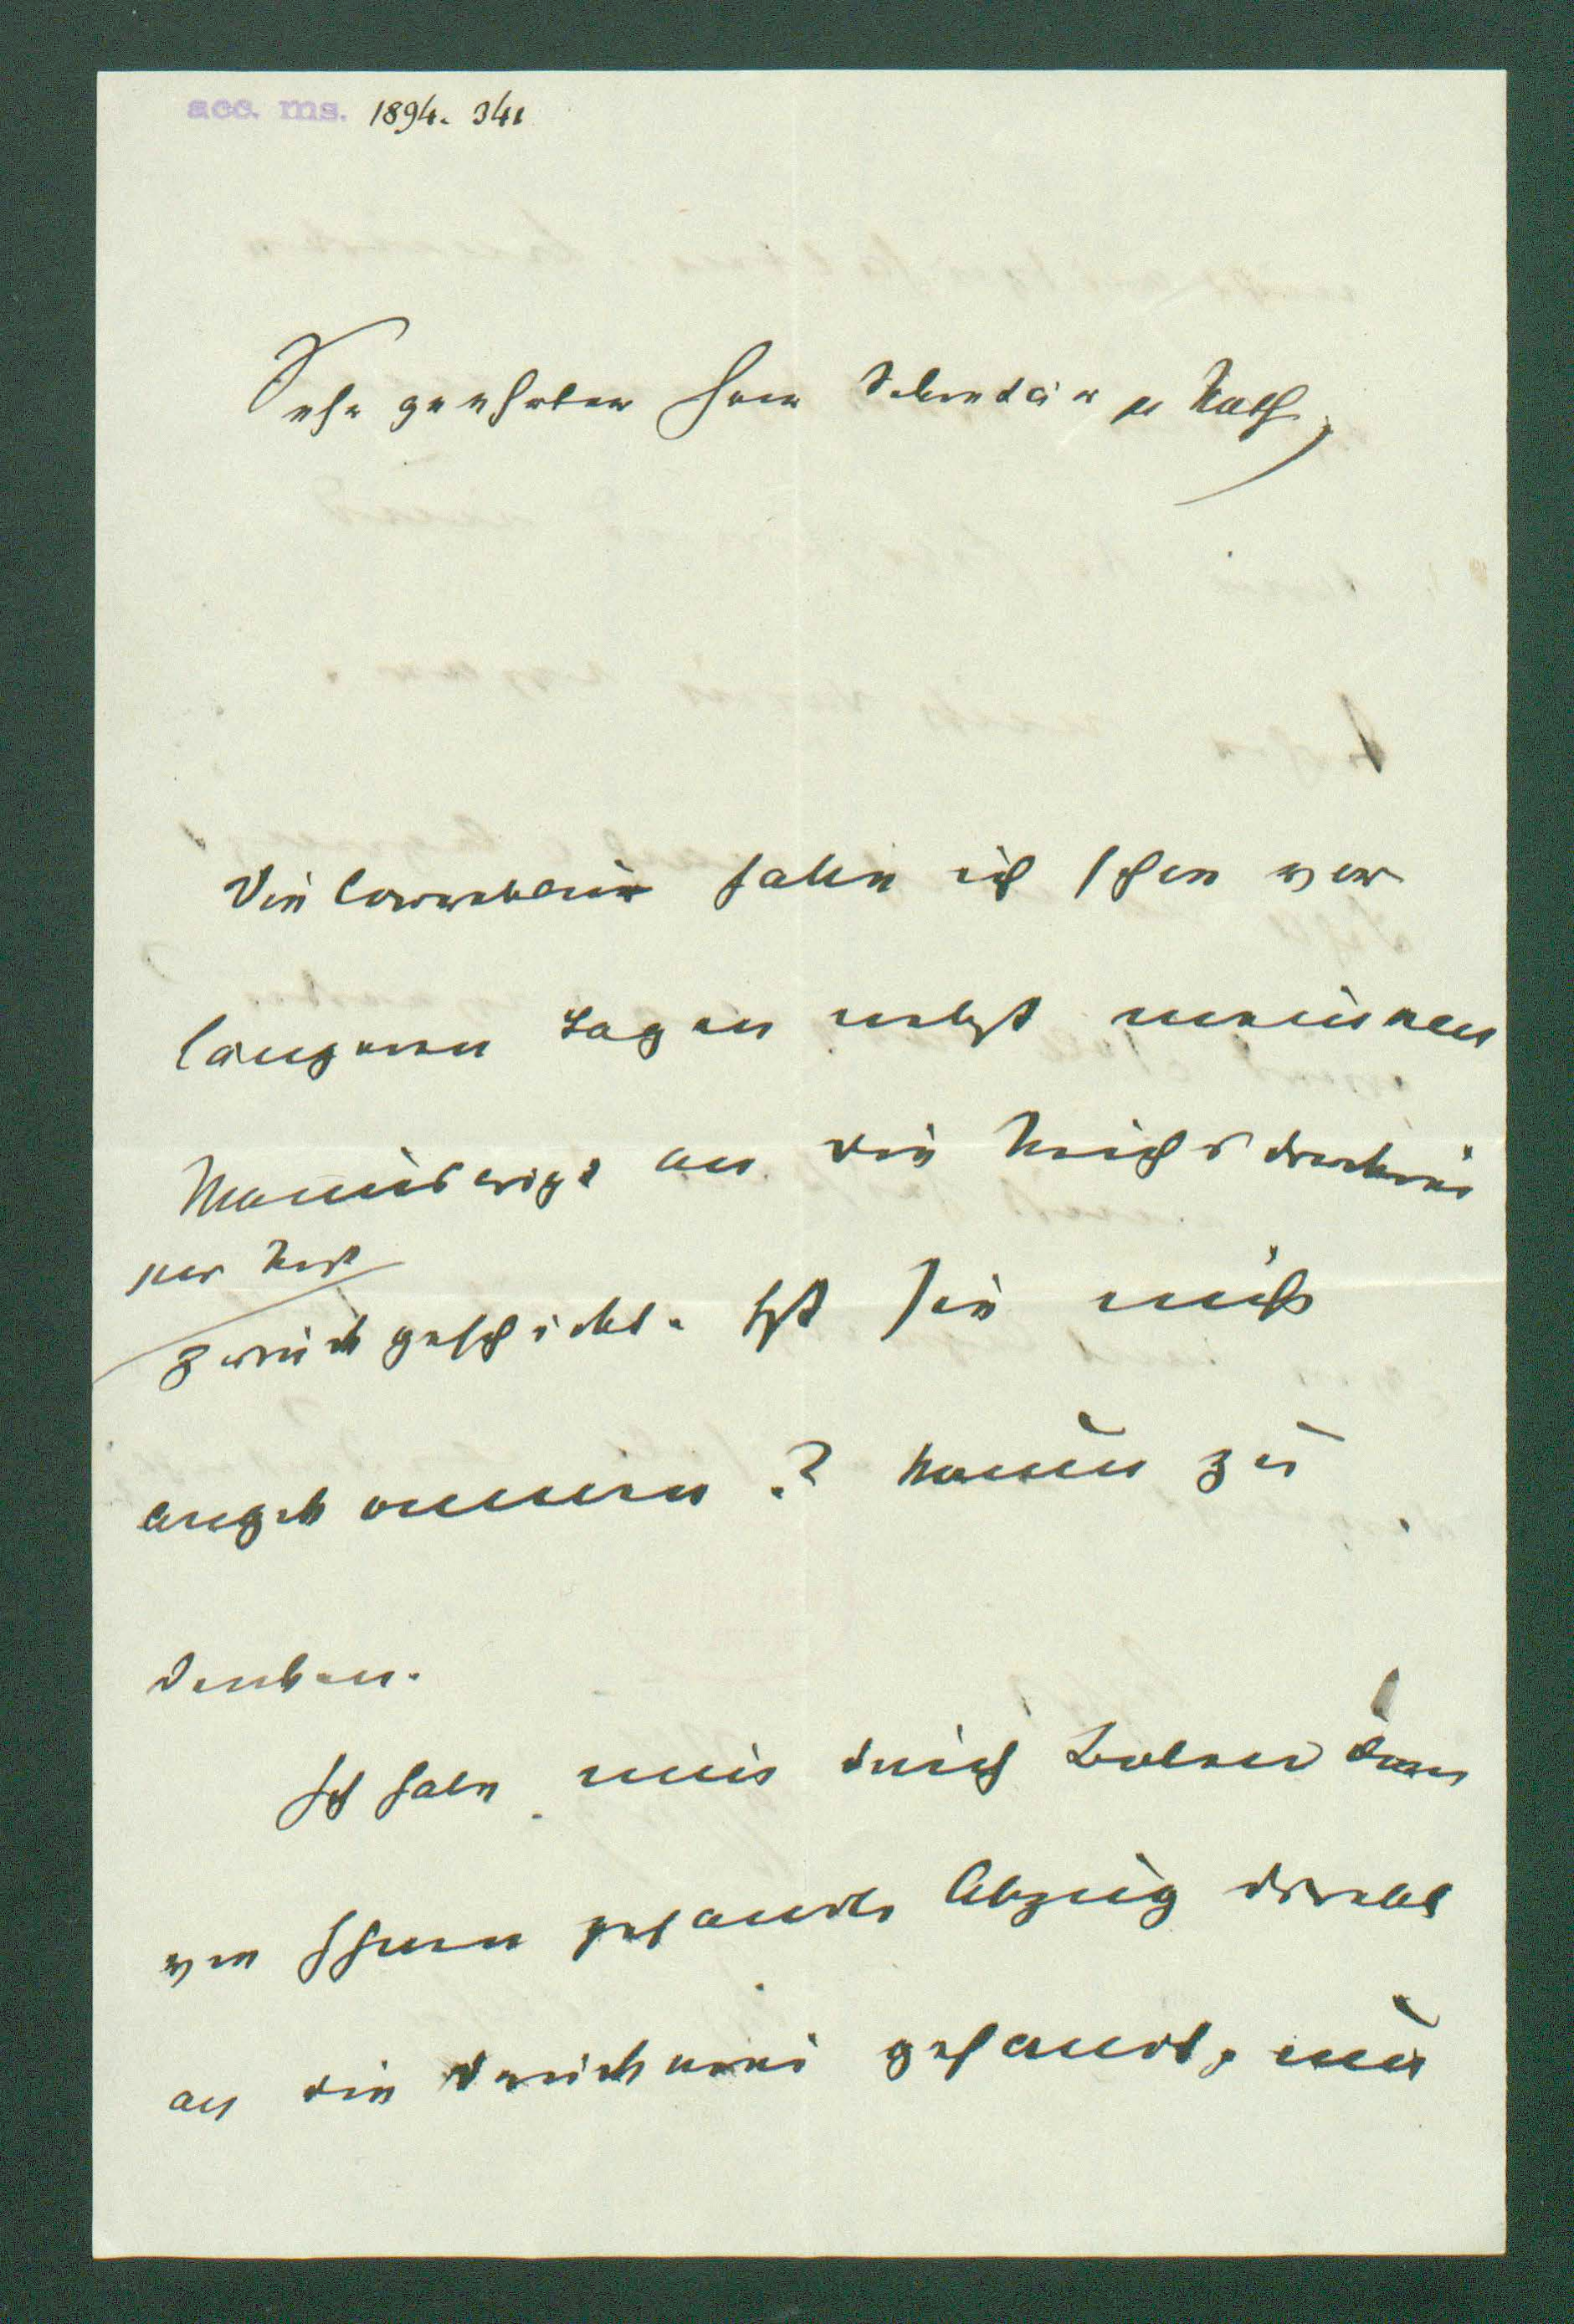 acc. ms. 1894. 341
Sehr geehrter Herr Sekretär u Rath,
Die Correktur habe ich schon vor
längeren Tagen nebst meinem
Manuscript an die Reichsdruckerei
per Post
zurück geschickt. Ist sie nicht
angekommen? Kaum zu
denken.
Ich habe nun durch
von Ihnen gesandte Abzug direkt
an die Druckerei gesandt, nur